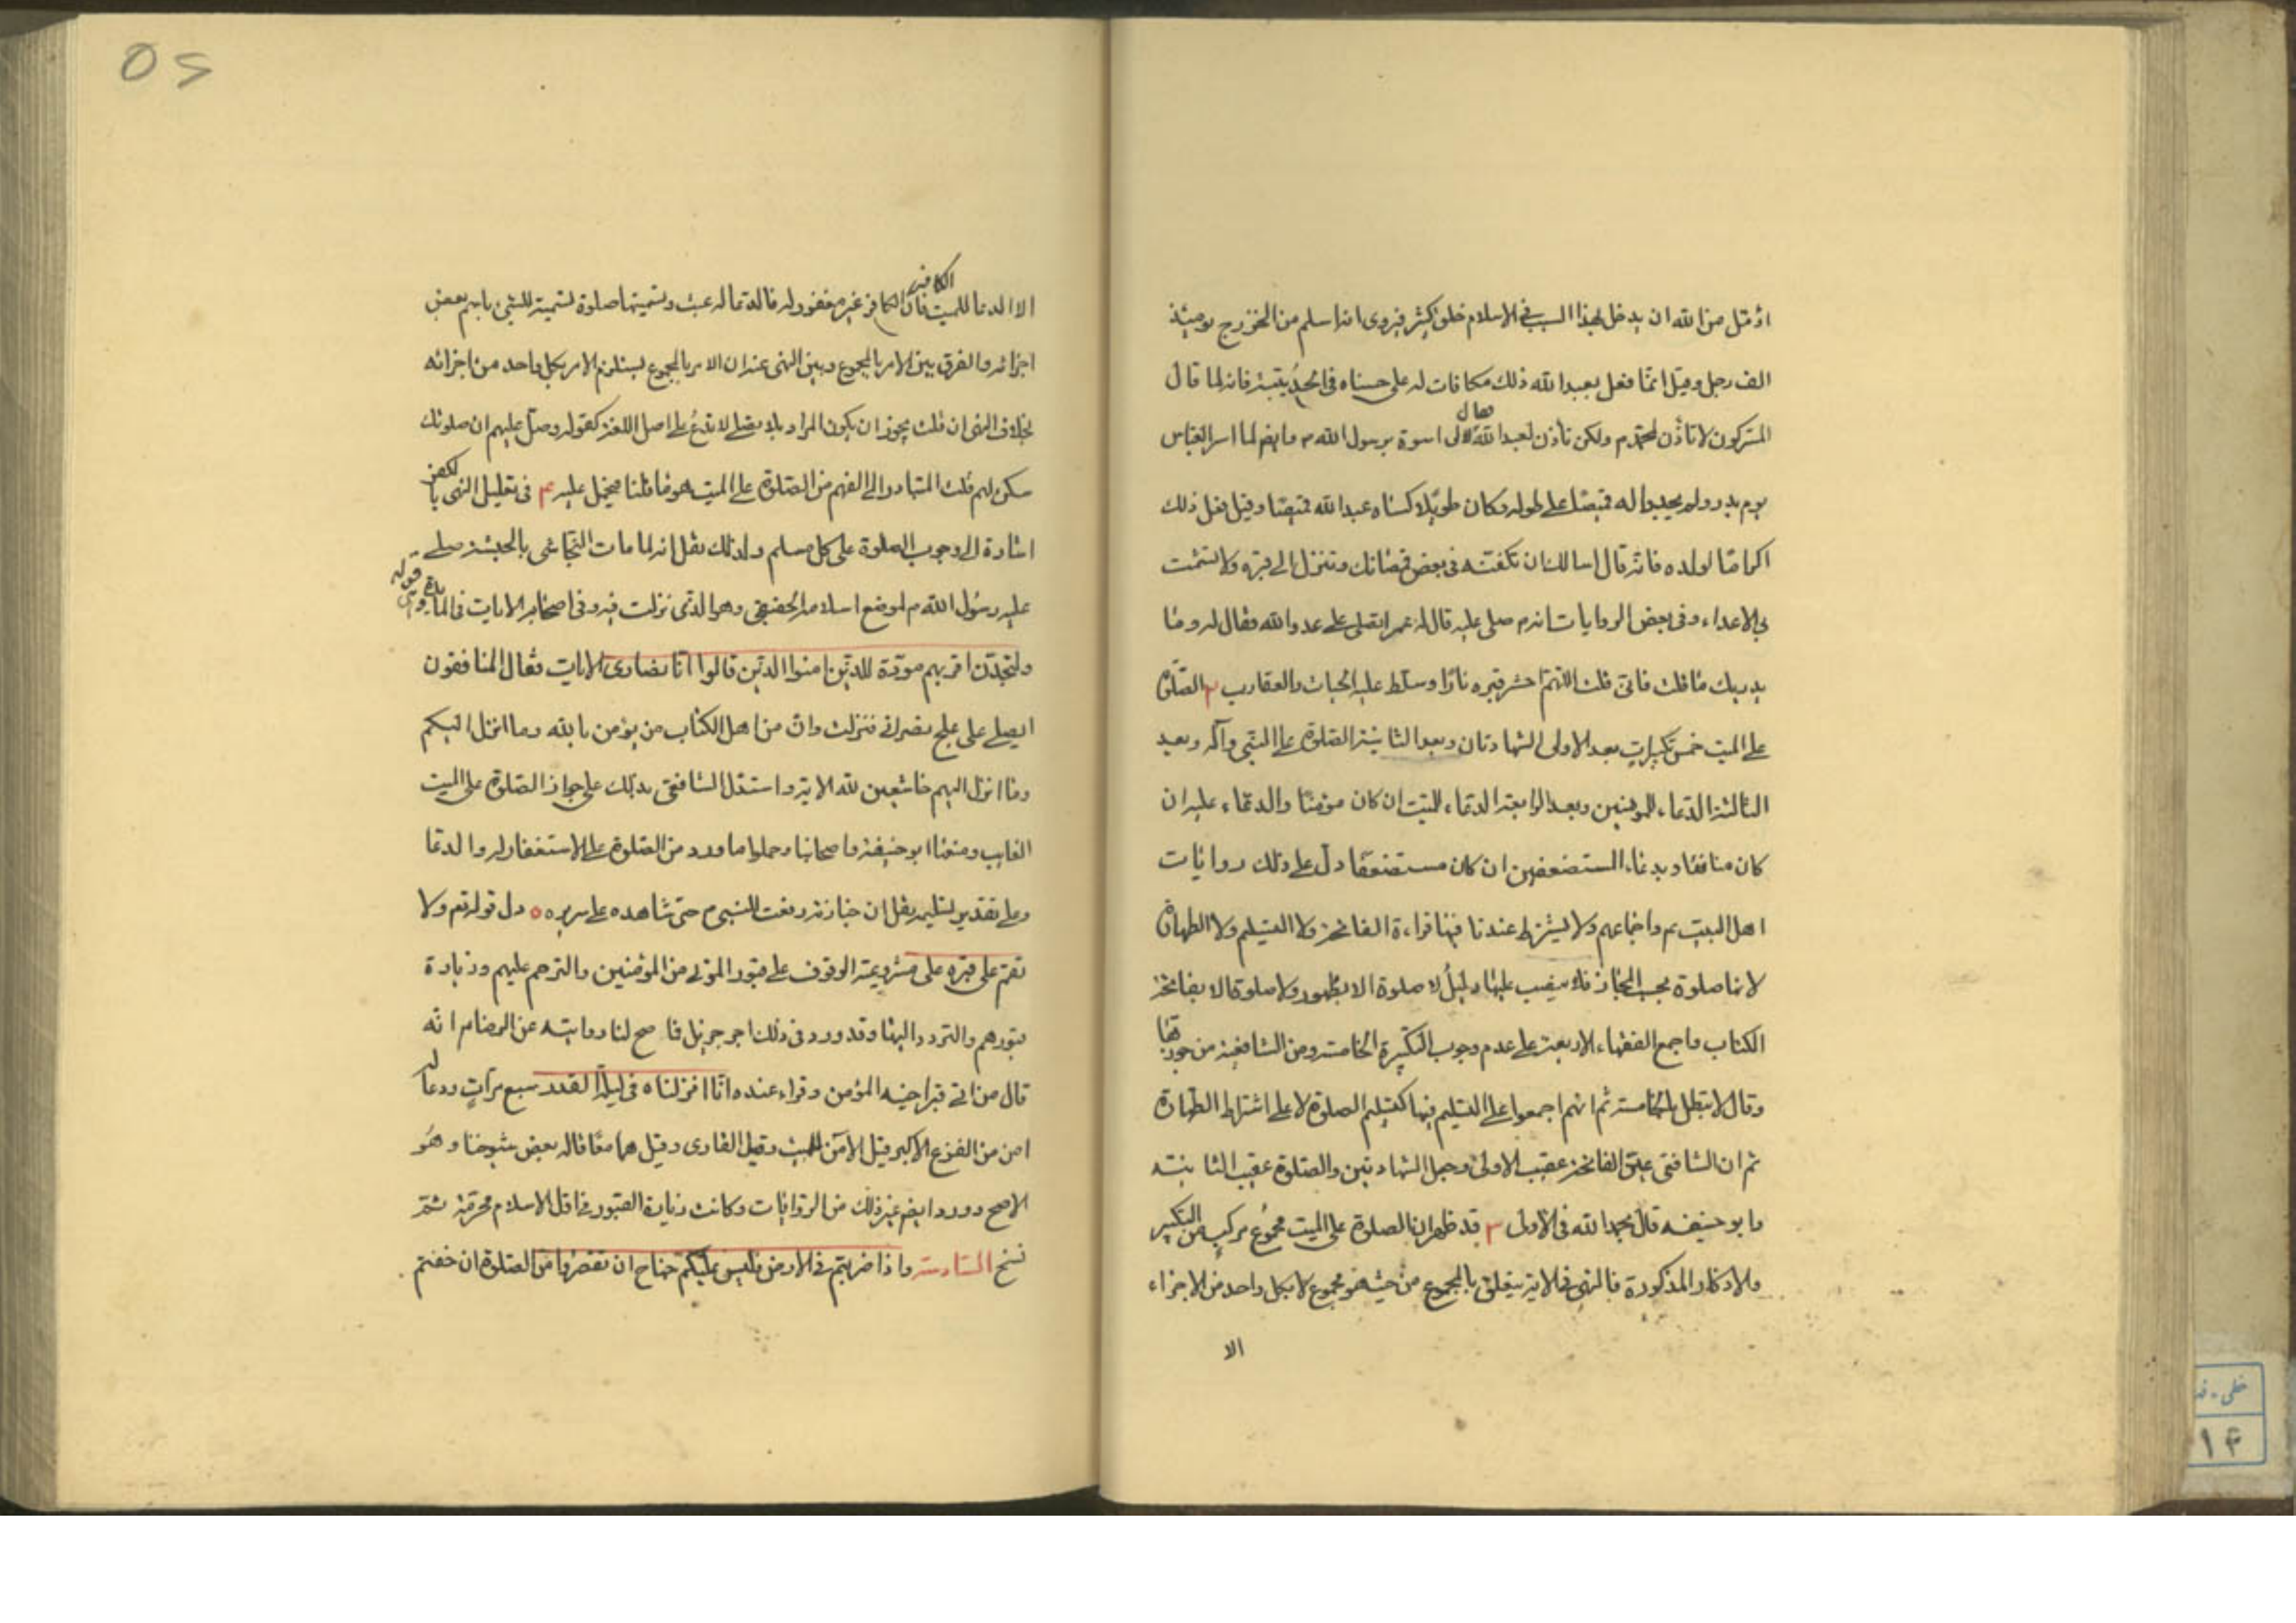 اؤمّل من الله ان يدخل بهذا السبب فى الاسلام خلق كثير فيروى انه اسلم من الخزرج يومئذ
الف رجل وقيل انّما فعل بعبد الله ذلك مكافات له على حسناه فى الحديبية فانه لما قال
المشركون لا نأذن لمحمّد م ولكن نأذن لعبد الله قال لا لى اسوة برسول الله م وايضم لما اسر العباس
يوم بدر ولم يجدوا له قميصا على طوله وكان طويلا كساه عبد الله قميصا وقيل فعل ذلك
اكراما لولده فانه قال اسالك ان تكفنه فى بعض قمصانك وتنزل الى قبره ولا تشمت
بى الاعداء وفى بعض الروايات انه م صلى عليه قال له عمر اتصلى على عدو الله فقال له وما
يدريك ما قلت فانى قلت اللهم احش قبره نارًا وسلّط عليه الحيات والعقارب ٢ الصّلوة
على الميت خمس تكبيرات بعد الاولى الشهادتان وبعد الثانية الصّلوة على النّبى وآله وبعد
الثالثة الدعاء للمومنين وبعد الرابعة الدعاء للميّت ان كان مؤمنًا والدعاء عليه ان
كان منافقا وبدعاء المستضعفين ان كان مستضعفا دلّ على ذلك روايات
اهل البيت ع م واجماعهم ولا يشترط عندنا فيها قراءة الفاتحة ولا التسليم ولا الطهارة
لانها صلوة بحسب المجاز فلا ينصب عليها دليلُ لا صلوة الا بطهور ولا صلوة الا بفاتحة
الكتاب واجمع الفقهاء الاربعة على عدم وجوب التكبيرة الخامسة ومن الشافعية من جوزها
وقال لا تبطل بالخامسة ثم انهم اجمعوا على التسليم فيها كتسليم الصلوة لا على اشتراط الطهارة
ثم ان الشافعى عيّن الفاتحة عقيب الاولى وجعل الشهادتين والصلوة عقيب الثانية
وابو حنيفه قال بحمد الله فى الاولى ٣ قد ظهر ان الصلوة على الميت مجموعُ مركب من التكبير
والاذكار المذكورة فالنهى فى الاية يتعلق بالمجموع من حيث هو مجموع لا بكل واحد من الاجزاء
الا
٥٢
الا الدعا للميت فان الكافر غير مغفور له فالدعا له عبث وتسميتها صلوة تسمية للشئ باسم بعض
اجزائه والفرق بين الامر بالمجموع وبين النهى عنه ان الامر بالمجموع يستلزم الامر بكل واحد من اجزائه
بخلاف النهى ان قلت يجوز ان يكون المراد بلا تصلّ لا تدعُ على اصل اللغة كقوله وصلّ عليهم ان صلوتك
سكن لهم قلت المتبادر الى الفهم من الصّلوة على الميت هو ما قلنا فيحمل عليه ٤ فى تعليل النهى بالكفر
اشارة الى وجوب الصلوة على كل مسلم ولذلك نقل انه لما مات النجّاشى بالحبشة صلى
عليه رسول الله م لموضع اسلامه الحقيقى وهو الذى نزلت فيه وفى اصحابه الايات فى المائدة قوله
ولتجدّن اقربهم مودّة للذين امنوا الذين قالوا انّا نصارى الايات فقال المنافقون
ايصلى على علج نصرانى فنزلت وانّ من اهل الكتاب من يؤمن بالله وما انزل اليكم
وما انزل اليهم خاشعين لله الاية واستدل الشافعى بذلك على جواز الصّلوة على الميت
الغايب ومنعنا ابو حنيفة واصحابنا وحملوا ما ورد من الصّلوة على الاستغفار له والدعا
وعلى تقدير تسليمه نقل ان جنازته رفعت للنبى م حتى شاهده على سريره ٥ دل قوله تع ولا
تقم على قبره على مشروعية الوقوف على قبور الموتى من المؤمنين والترحم عليهم وزيارة
قبورهم والتردد اليها وقد ورد فى ذلك اجر جزيل فا صح لنا روايته عن الرضا م انّه
قال من اتى قبر اخيه المؤمن وقراء عنده انّا انزلناه فى ليلة القدر سبع مرّات ودعا له
امن من الفزع الاكبر قيل الآمن الميت وقيل القارى وقيل هما معًا قاله بعض شيوخنا وهُو
الاصح وورد ايضم غير ذلك من الروايات وكانت زيارة القبور فى اوّل الاسلام محرّمة ثم
نسخ السّادسة واذا ضربتم فى الارض فليس عليكم جناح ان تقصروا من الصّلوة ان خفتم
خطى
١٤